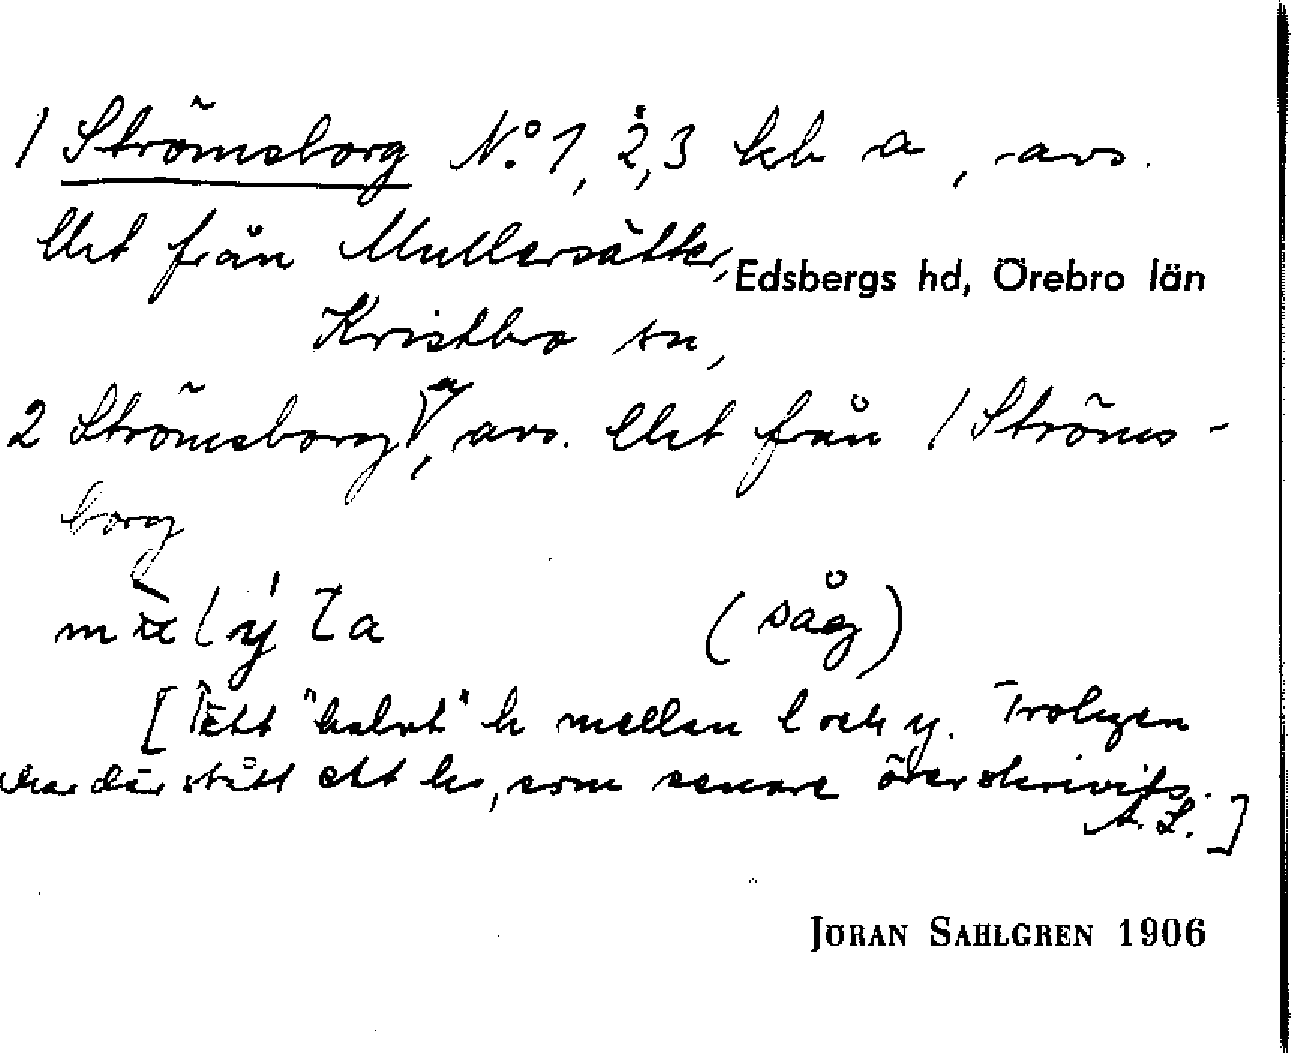 1 Strömsborg No. 1, 2, 3 lh a, avs.
Utt från Mullersätter,
Edsbergs hd, Örebro län
Kristbo sn,
2 Strömsborg a, avs. Utt från 1 Ströms-
borg
(såg)
[Ett "halvt" h mellan l och y. Troligen
har där stått ett h, som senare överskrivits.
A. L.]
JÖRAN SAHLGREN 1906